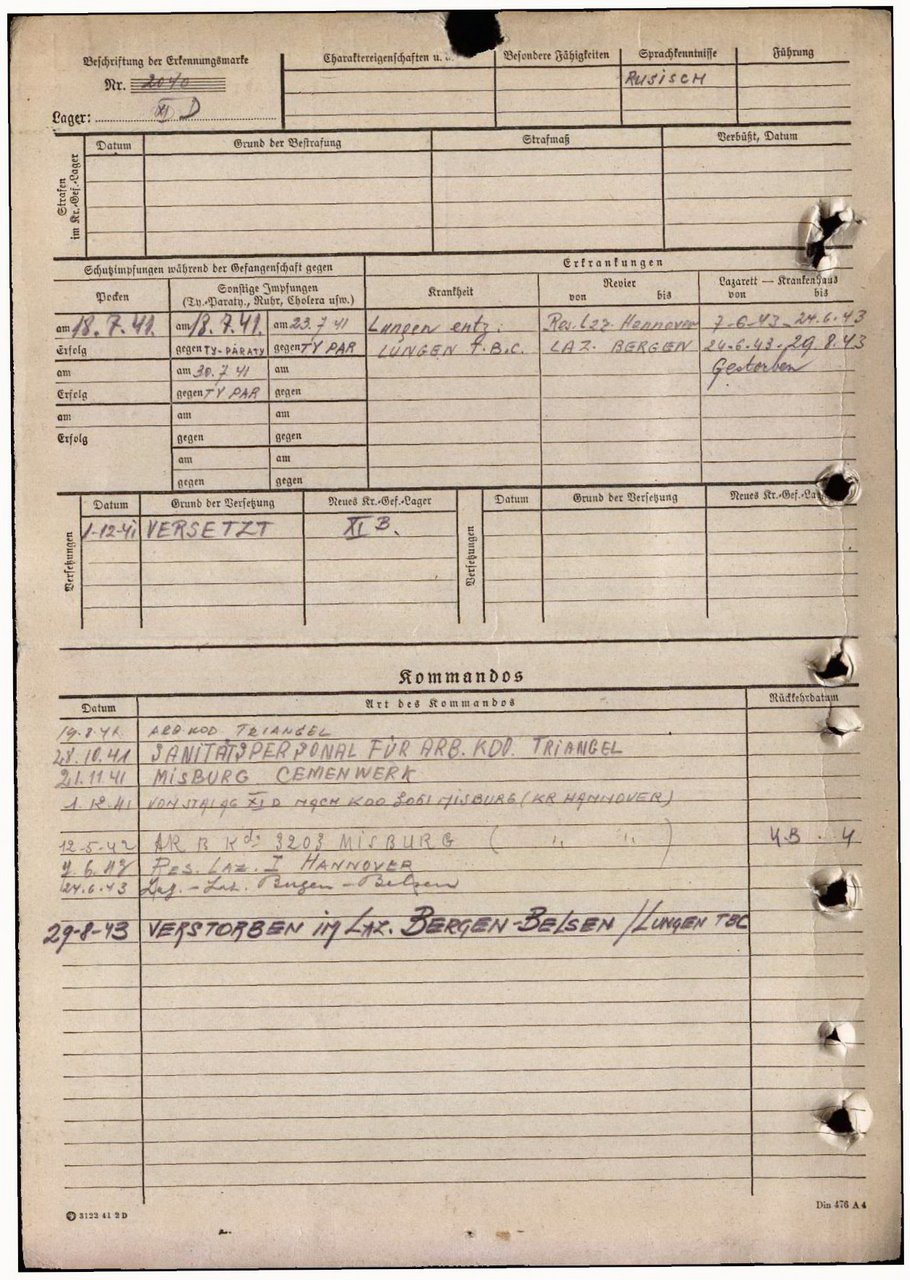 Beschriftung der Erkennungsmarke
Nr. 2040
Lager: XI D
Charaktereigenschaften u.
Besondere Fähigkeiten
Sprachkenntnisse
Führung
RUSISCH
Strafen im Kr.-Gef.-Lager
Datum Grund der Bestrafung Strafmaß Verbüßt, Datum
Schutzimpfungen während der Gefangenschaft gegen
Erkrankungen
Pocken
Sonstige Impfungen
(Ty.-Paraty., Ruhr, Cholera usw.)
Krankheit
Revier
von bis
Lazarett — Krankenhaus
von bis
am 18.7.41. am 18.7.41. am 23.7.41 Lungen entz. Res. Laz. Hannover 7-6-43-24.6.43
Erfolg gegen TY-PARATY gegen TY PAR LUNGEN T.B.C. LAZ. BERGEN 24-6-43-29.8.43
am am 30.7.41 am Gestorben
Erfolg gegen TY PAR gegen
am am am
Erfolg gegen gegen
am am
gegen gegen
Versetzungen
Datum Grund der Versetzung Neues Kr.-Gef.-Lager
1-12-41 VERSETZT XI B.
Versetzungen
Datum Grund der Versetzung Neues Kr.-Gef.-
Kommandos
Datum Art des Kommandos Rückkehrdatum
19.8.41. ARB. KOD. TRIANGEL
28.10.41 SANITÄTSPERSONAL FÜR ARB. KDO. TRIANGEL
21.11.41 MISBURG CEMENWERK
1.12.41 VON STALAG XI D NACH KDO 3061 MISBURG (KR HANNOVER)
12-5-42 ARB Kdo 3203 MISBURG ( " " )
7.6.43 RES. LAZ. I HANNOVER
24.6.43 Laz. Bergen-Belsen
29-8-43 VERSTORBEN im LAZ. BERGEN-BELSEN / LUNGEN TBC
3122 41 2 D
Din 476 A 4